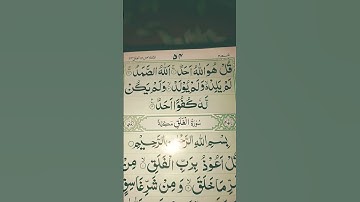 ۵۴
قُلْ هُوَ اللّٰهُ اَحَدٌ ۚ اَللّٰهُ الصَّمَدُ ۚ
لَمْ يَلِدْ ۙ وَلَمْ يُوْلَدْ ۙ وَلَمْ يَكُنْ
لَّهٗ كُفُوًا اَحَدٌ
سُوْرَةُ الْفَلَقِ مَكِّيَّةٌ
بِسْمِ اللّٰهِ الرَّحْمٰنِ الرَّحِيْمِ
قُلْ اَعُوْذُ بِرَبِّ الْفَلَقِ ۙ مِنْ
شَرِّ مَا خَلَقَ ۙ وَمِنْ شَرِّ غَاسِقٍ